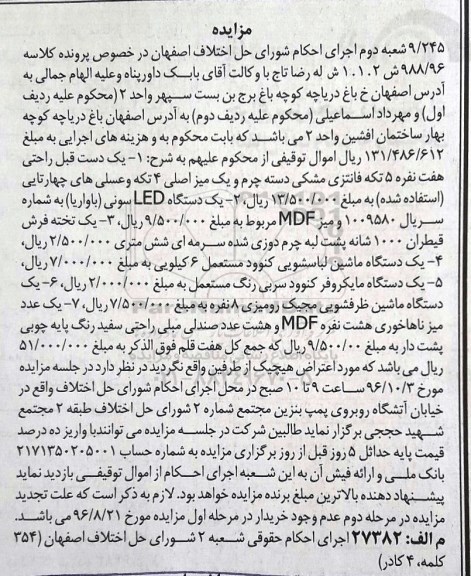 مزایده
۹/۲۴۵ شعبه دوم اجرای احکام شورای حل اختلاف اصفهان در خصوص پرونده کلاسه
۹۸۸/۹۶ ش ۱.۱.۲ ش له رضا تاج با وکالت آقای بابک داورپناه وعلیه الهام جمالی به
آدرس اصفهان خ باغ دریاچه کوچه باغ برج بن بست سپهر واحد ۲ (محکوم علیه ردیف
اول) و مهرداد اسماعیلی (محکوم علیه ردیف دوم) به آدرس اصفهان باغ دریاچه کوچه
بهار ساختمان افشین واحد ۲ می باشد که بابت محکوم به و هزینه های اجرایی به مبلغ
۱۳۱/۴۸۶/۶۱۲ ریال اموال توقیفی از محکوم علیهم به شرح: ۱- یک دست قبل راحتی
هفت نفره ۵ تکه فانتزی مشکی دسته چرم و یک میز اصلی ۴ تکه وعسلی های چهارتایی
(استفاده شده) به مبلغ ۱۳/۵۰۰/۰۰۰ ریال، ۲- یک دستگاه LED سونی (باواریا) به شماره
سریال ۱۰۰۹۵۸۰ و میز MDF مربوط به مبلغ ۹/۵۰۰/۰۰۰ ریال، ۳- یک تخته فرش
قیطران ۱۰۰۰ شانه پشت لبه چرم دوزی شده سرمه ای شش متری ۲/۵۰۰/۰۰۰ ریال،
۴- یک دستگاه ماشین لباسشویی کنوود مستعمل ۶ کیلویی به مبلغ ۷/۰۰۰/۰۰۰ ریال،
۵- یک دستگاه مایکروفر کنوود سربی رنگ مستعمل به مبلغ ۲/۰۰۰/۰۰۰ ریال، ۶- یک
دستگاه ماشین ظرفشویی مجیک رومیزی ۸ نفره به مبلغ ۷/۵۰۰/۰۰۰ ریال، ۷- یک عدد
میز ناهارخوری هشت نفره MDF و هشت عدد صندلی مبلی راحتی سفید رنگ پایه چوبی
پشت دار به مبلغ ۹/۵۰۰/۰۰ ریال که جمع کل هفت قلم فوق الذکر به مبلغ ۵۱/۰۰۰/۰۰۰
ریال می باشد که مورد اعتراض هیچیک از طرفین واقع نگردید در نظر دارد در جلسه مزایده
مورخ ۹۶/۱۰/۳ ساعت ۹ تا ۱۰ صبح در محل اجرای احکام شورای حل اختلاف واقع در
خیابان آتشگاه روبروی پمپ بنزین مجتمع شماره ۲ شورای حل اختلاف طبقه ۲ مجتمع
شهید حججی برگزار نماید طالبین شرکت در جلسه مزایده می توانندبا واریز ده درصد
قیمت پایه حداقل ۵ روز قبل از روز برگزاری مزایده به شماره حساب ۲۱۷۱۳۵۰۲۰۵۰۰۱
بانک ملی و ارائه فیش آن به این شعبه اجرای احکام از اموال توقیفی بازدید نماید
پیشنهاد دهنده بالاترین مبلغ برنده مزایده خواهد بود. لازم به ذکر است که علت تجدید
مزایده در مرحله دوم عدم وجود خریدار در مرحله اول مزایده مورخ ۹۶/۸/۲۱ می باشد.
م الف: ۲۷۳۸۲ اجرای احکام حقوقی شعبه ۲ شورای حل اختلاف اصفهان (۳۵۴
کلمه، ۴ کادر)